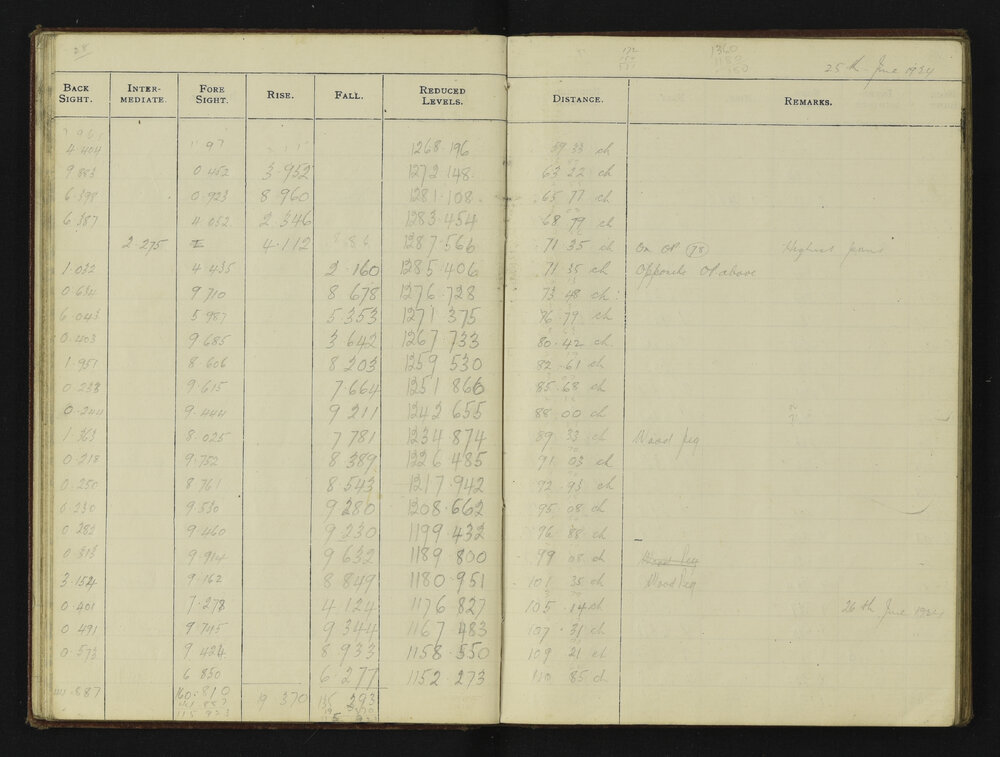 28
25th June 1934
BACK SIGHT. INTERMEDIATE. FORE SIGHT. RISE. FALL. REDUCED LEVELS. DISTANCE. REMARKS.
4.404 1268.196 59 33 ch
9.883 0.452 3.952 1272.148 63 22 ch
6.398 0.923 8.960 1281.108 65.77 ch
6.387 4.052 2.346 1283.454 68 79 ch
2.275 4.112 1287.566 71 35 ch On OP (78) Highest
1.032 4.435 2.160 1285.406 71.35 ch Opposite OP above
0.634 9.710 8.678 1276.728 73 48 ch
6.043 5.987 5.353 1271.375 76.79 ch
0.403 9.685 3.642 1267.733 80.42 ch
1.951 8.606 8.203 1259.530 82.61 ch
0.233 9.615 7.664 1251.866 85.68 ch
0.244 9.444 9.211 1242.655 88.00 ch
1.363 8.025 7.781 1234.874 89 33 ch Wood peg
0.218 9.752 8.389 1226.485 91 03 ch
0.250 8.761 8.543 1217.942 92.93 ch
0.230 9.530 9.280 1208.662 95 08 ch
0.282 9.460 9.230 1199.432 96 88 ch
0.313 9.914 9.632 1189.800 99 08 ch Wood Peg
3.154 9.162 8.849 1180.951 101.35 ch Wood peg
0.401 7.278 4.124 1176.827 105.14 ch 26th June 1934
0.491 9.745 9.344 1167.483 107.31 ch
0.573 9.424 8.933 1158.550 109 21 ch
6.850 6.277 1152.273 110 85 ch
160.810 9.370 293